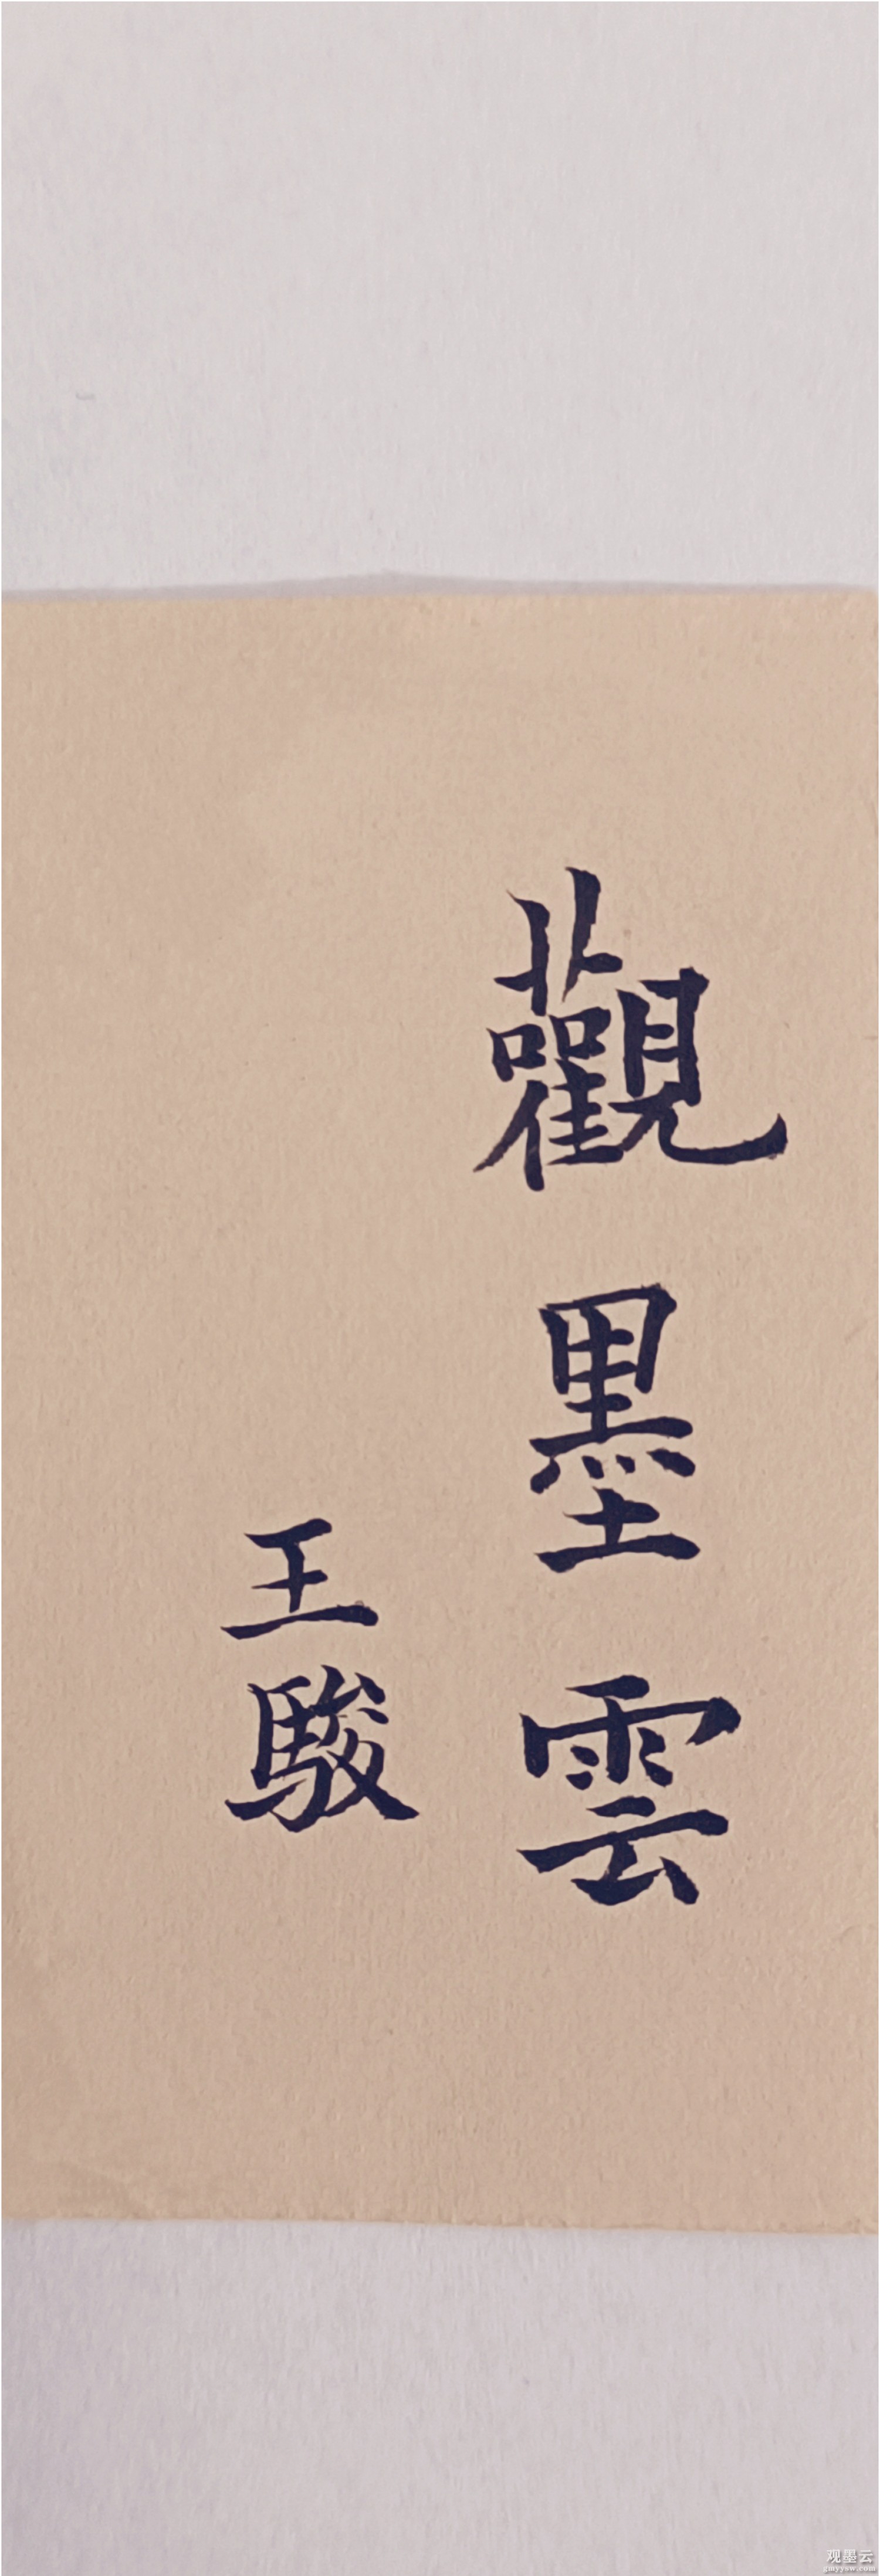 觀墨雲
王駿
观墨云
gmyyaw.com